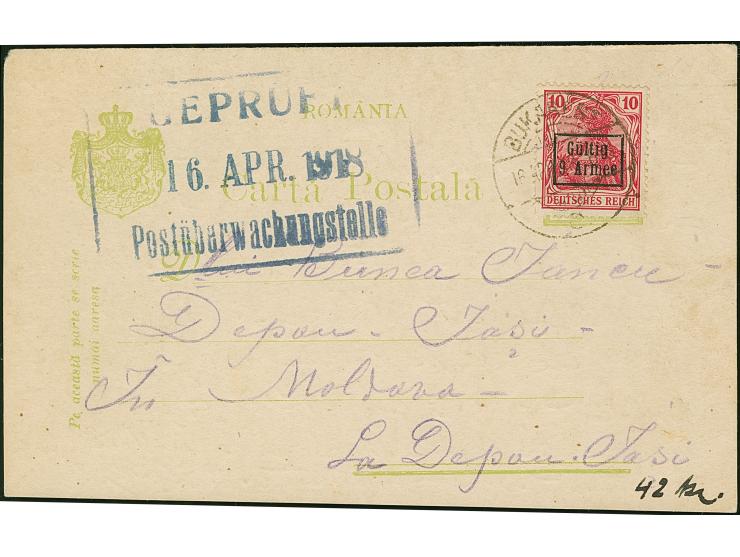 GEPRÜFT
ROMÂNIA
16. APR. 1918
Carta Postală
Postüberwachungstelle
10 10
Gültig
9. Armee
DEUTSCHES REICH
Dlui Bunea Iancu -
Depou - Iași -
În Moldova -
La Depou. Iasi
Pe această parte se scrie
numai adresa
42 kr.